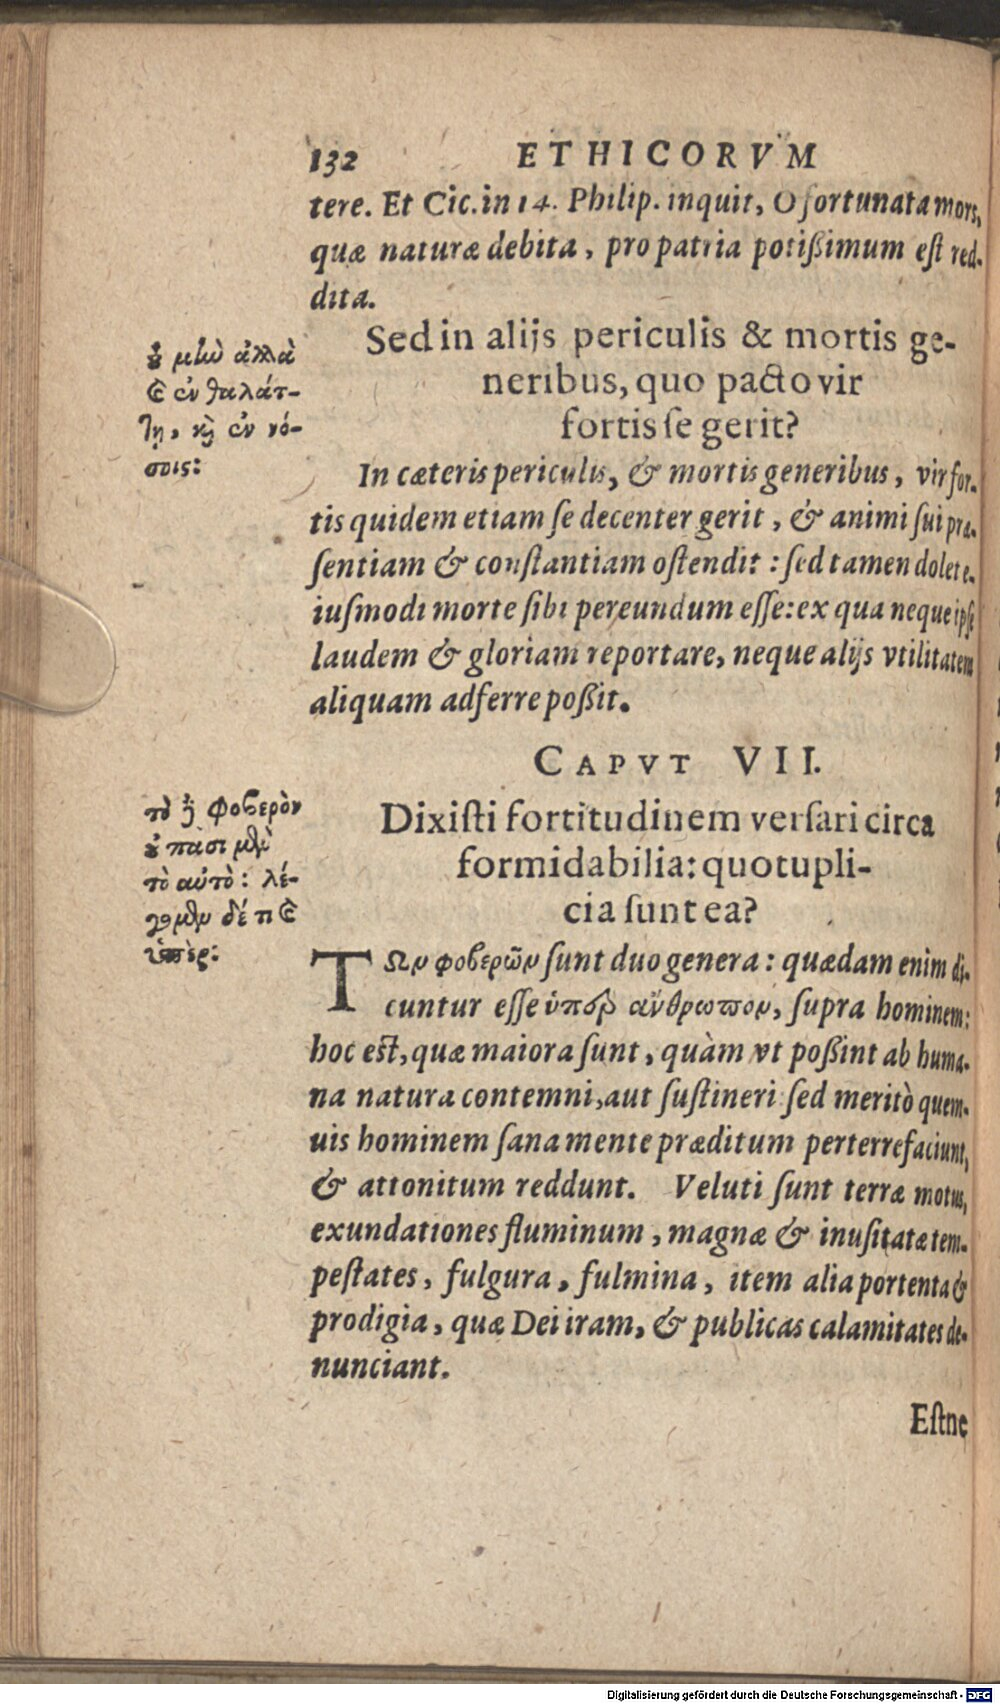 132 ETHICORVM
tere. Et Cic. in 14. Philip. inquit, O fortunata mors,
quæ naturæ debita, pro patria potißimum est red-
dita.
Sed in alijs periculis & mortis ge-
neribus, quo pacto vir
fortis se gerit?
οὐ μὴν ἀλλὰ
καὶ ἐν θαλάτ-
τῃ, καὶ ἐν νό-
σοις:
In cæteris periculis, & mortis generibus, vir for-
tis quidem etiam se decenter gerit, & animi sui præ-
sentiam & constantiam ostendit: sed tamen dolet e-
iusmodi morte sibi pereundum esse: ex qua neque ipse
laudem & gloriam reportare, neque alijs vtilitatem
aliquam adferre poßit.
CAPVT VII.
Dixisti fortitudinem versari circa
formidabilia: quotupli-
cia sunt ea?
τὸ δὲ φοβερὸν
οὐ πᾶσι μὲν
τὸ αὐτὸ: λέ-
γομεν δέ τι καὶ
ὑπὲρ:
ΤΩν φοβερῶν sunt duo genera: quædam enim di-
cuntur esse ὑπὲρ ἄνθρωπον, supra hominem:
hoc est, quæ maiora sunt, quàm vt poßint ab huma-
na natura contemni, aut sustineri sed meritò quem-
uis hominem sana mente præditum perterrefaciunt,
& attonitum reddunt. Veluti sunt terræ motus,
exundationes fluminum, magnæ & inusitatæ tem-
pestates, fulgura, fulmina, item alia portenta &
prodigia, quæ Dei iram, & publicas calamitates de-
nunciant.
Estne
Digitalisierung gefördert durch die Deutsche Forschungsgemeinschaft - DFG